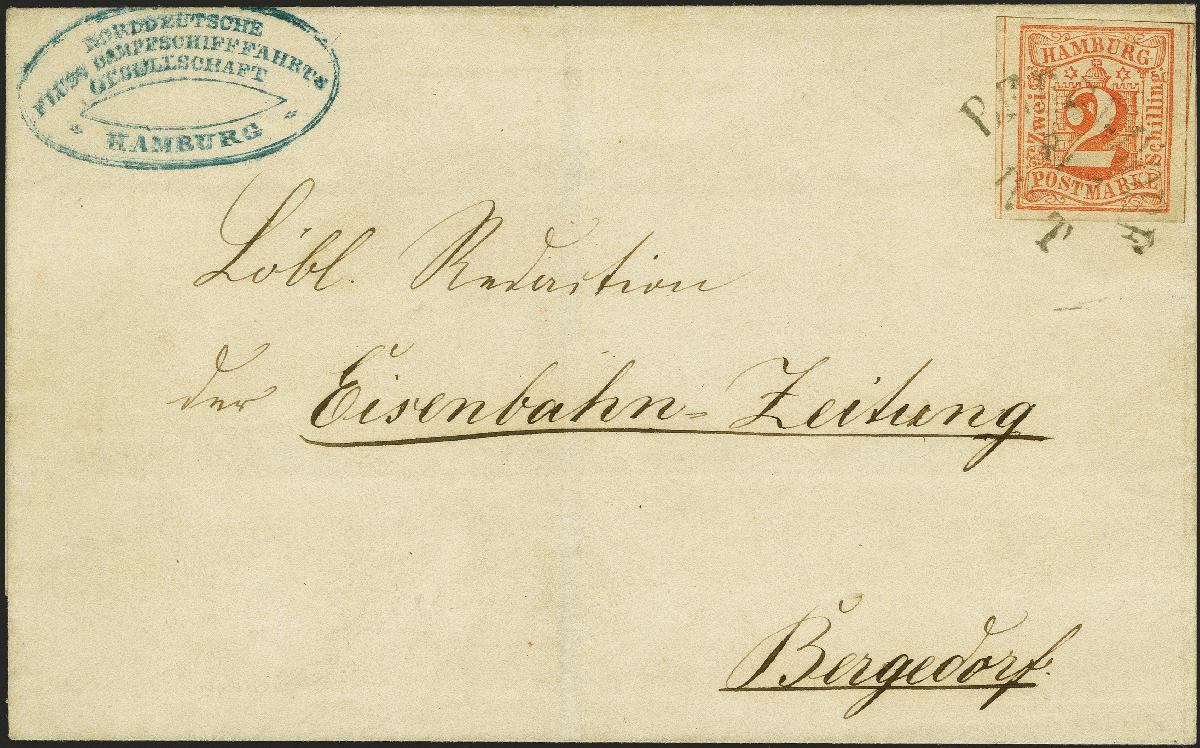 NORDDEUTSCHE
FLUSS DAMPFSCHIFFFAHRTS
GESELLSCHAFT
HAMBURG
HAMBURG
Zwei
2
Schilling
POSTMARKE
Löbl. Redaction
der Eisenbahn-Zeitung
Bergedorf.